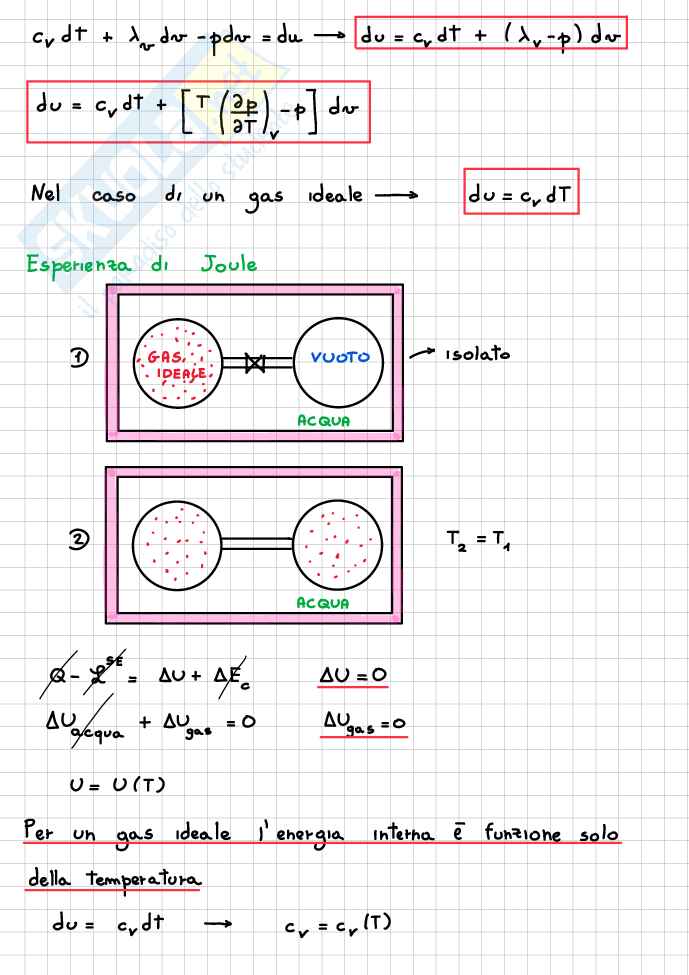 c_v dt + λ_v dv - pdv = du → du = c_v dt + (λ_v - p) dv
du = c_v dt + [T (∂p/∂T)_v - p] dv
Nel caso di un gas ideale → du = c_v dT
Esperienza di Joule
1) GAS IDEALE VUOTO → Isolato
ACQUA
2) T_2 = T_1
ACQUA
Q - ℒ^SE = ΔU + ΔE_c ΔU = 0
ΔU_acqua + ΔU_gas = 0 ΔU_gas = 0
U = U(T)
Per un gas ideale l'energia interna ē funzione solo
della temperatura
du = c_v dt → c_v = c_v (T)